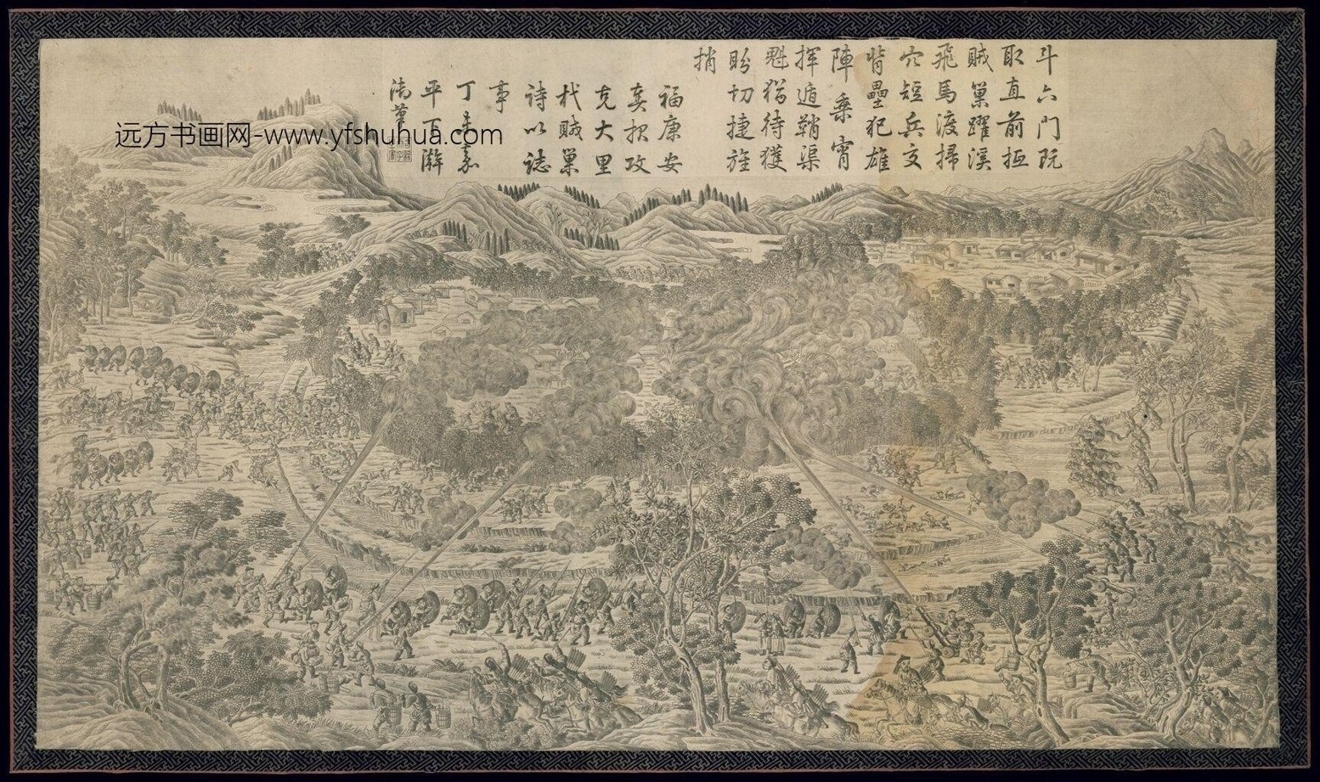 斗六門既
取直前抵
賊巢躍溪
飛馬渡掃
穴短兵交
背壘犯雄
陣乘宵
揮遁鞘渠
魁猶待獲
盼切捷旌
捎
福康安
奏報攻
克大里
杙賊巢
詩以誌
事
丁未嘉
平下澣
御筆
远方书画网-www.yfshuhua.com